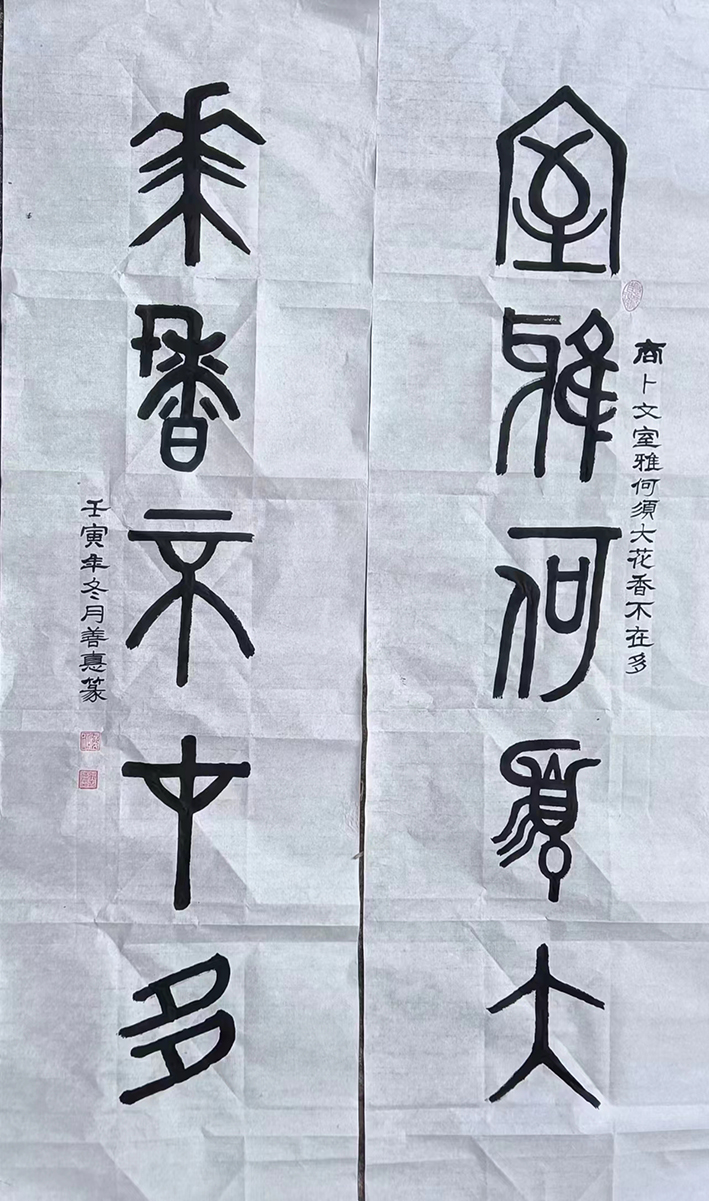 室雅何須大
商卜文室雅何須大花香不在多
花香不在多
壬寅年冬月善惪篆